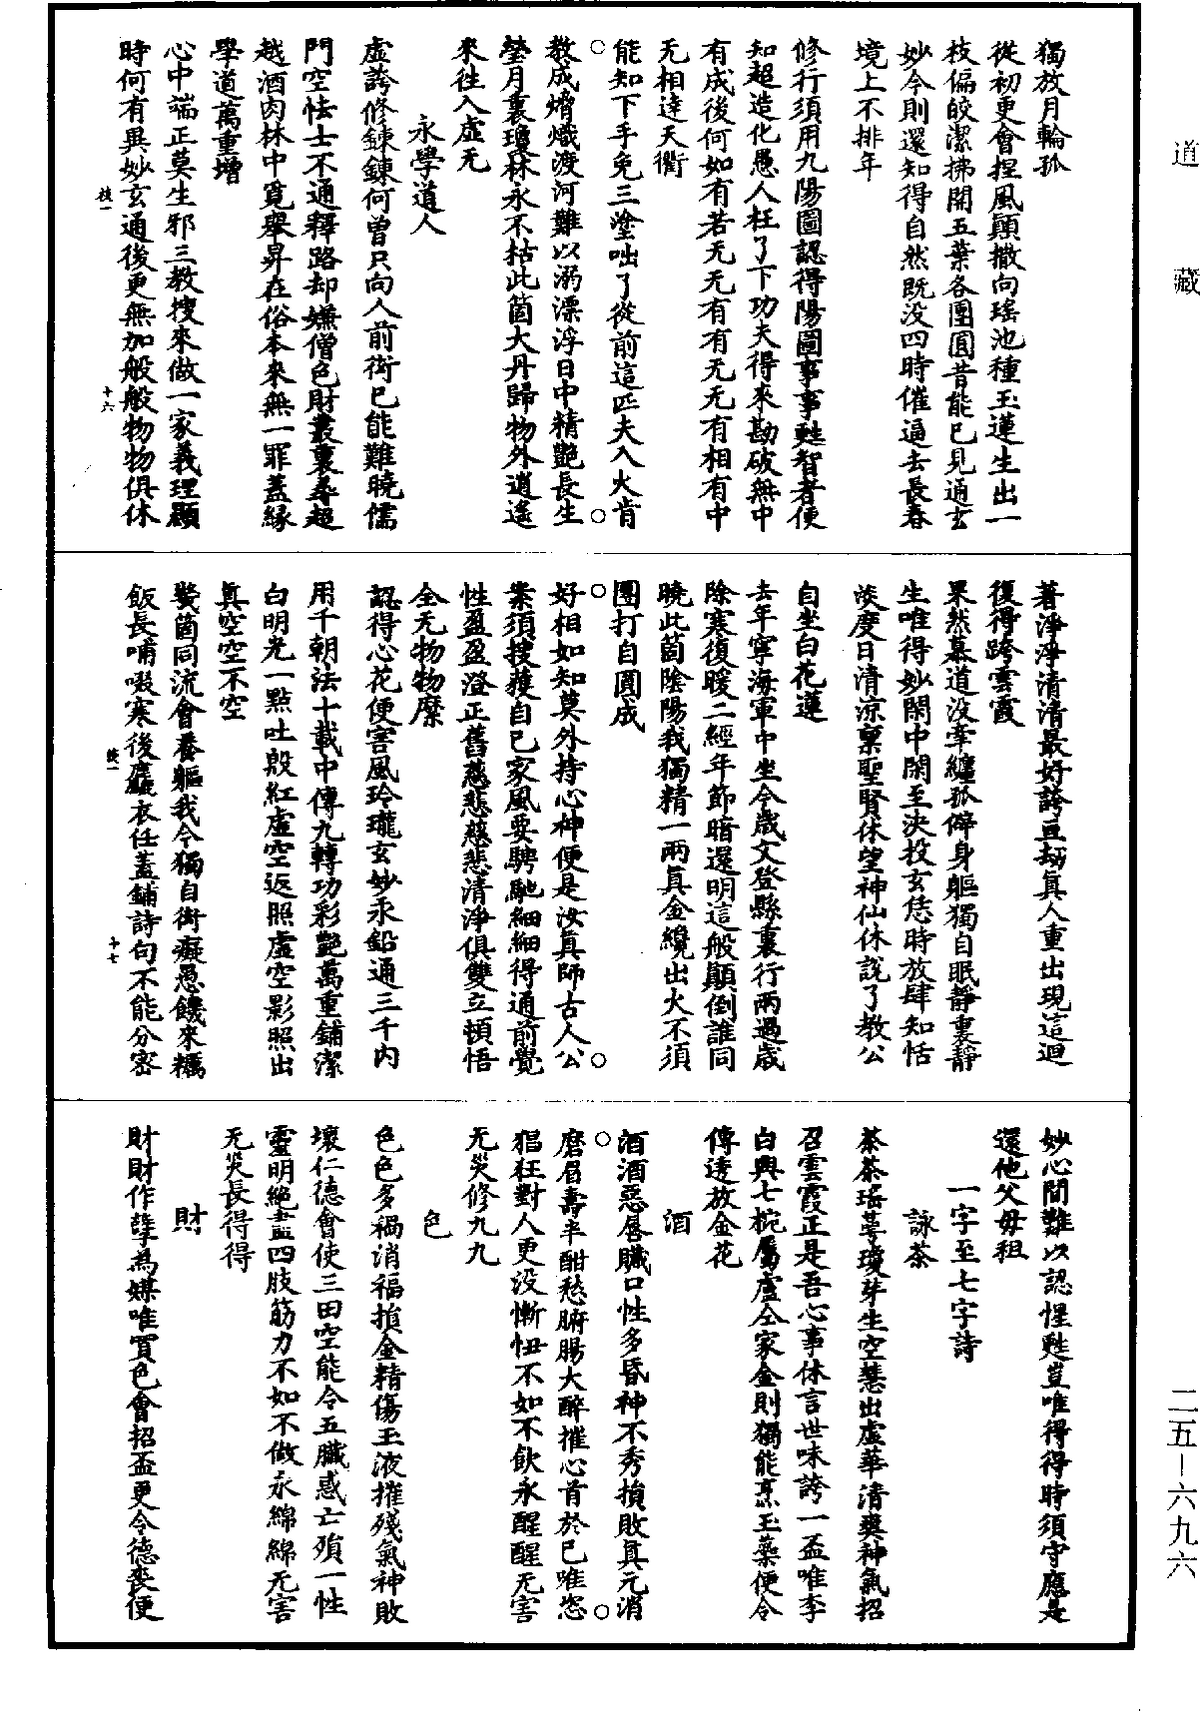 道藏
獨放月輪孤
從初更會捏風顛撒向瑤池種玉蓮生出一
枝偏皎潔拂開五葉各團圓昔能已見通玄
妙今則還知得自然既没四時催逼去長春
境上不排年
修行須用九陽圖認得陽圖事事甦智者便
知超造化愚人枉了下功夫得來勘破無中
有成後何如有若无无有有无无有相有中
无相達天衢
能知下手免三塗咄了從前這匹夫入火肯
教成熸熾渡河難以溺漂浮日中精艷長生
瑩月裏瓊林永不枯此箇大丹歸物外逍遙
來往入虛无
永學道人
虛誇修鍊鍊何曾只向人前衒已能難曉儒
門空怯士不通釋路却嫌僧色財叢裏尋超
越酒肉林中覓舉昇在俗本來無一罪蓋緣
學道萬重增
心中端正莫生邪三教搜來做一家義理顯
時何有異妙玄通後更無加般般物物俱休
枝一 十六
著淨淨清清最好誇亘劫真人重出現這迴
復得跨雲霞
果然慕道没牽纏孤僻身軀獨自眠靜裏靜
生唯得妙閑中閑至決投玄恁時放肆知恬
淡度日清涼稟聖賢休望神仙休説了教公
自坐白花蓮
去年寧海軍中坐今歲文登縣裏行兩過歲
除寒復暖二經年節暗還明這般顛倒誰同
曉此箇陰陽我獨精一兩真金纔出火不須
團打自圓成
好相如知莫外持心神便是汝真師古人公
案須搜獲自己家風要騁馳細細得通前覺
性盈盈澄正舊慈悲慈悲清淨俱雙立頓悟
全无物物縻
認得心花便害風玲瓏玄妙永鉛通三千内
用千朝法十載中傳九轉功彩艷萬重鋪潔
白明光一點吐殷紅虛空返照虛空影照出
真空空不空
幾箇同流會養軀我今獨自衒癡愚饑來糲
飯長哺啜寒後麤衣任蓋鋪詩句不能分密
枝一 十七
妙心間難以認惺甦豈唯得得時須守應是
還他父母祖
一字至七字詩
詠茶
茶茶瑤萼瓊芽生空慧出虛華清爽神氣招
召雲霞正是吾心事休言世味誇一盃唯李
白興七椀屬盧仝家金則獨能烹玉蘂便令
傳透放金花
酒
酒酒惡唇贓口性多昏神不秀損敗真元消
磨眉壽半酣愁腑腸大醉摧心首於己唯恣
猖狂對人更没慚忸不如不飲永醒醒无害
无災修九九
色
色色多禍消福損金精傷玉液摧殘氣神敗
壞仁德會使三田空能令五臟惑亡殞一性
靈明絶盡四肢筋力不如不做永綿綿无害
无災長得得
財
財財作孽為媒唯買色會招盃更令德喪便
二五—六九六